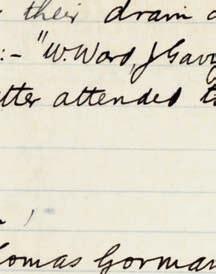 their dram
:- "W. Ward, J Gavi
tter attended t
homas Gorman